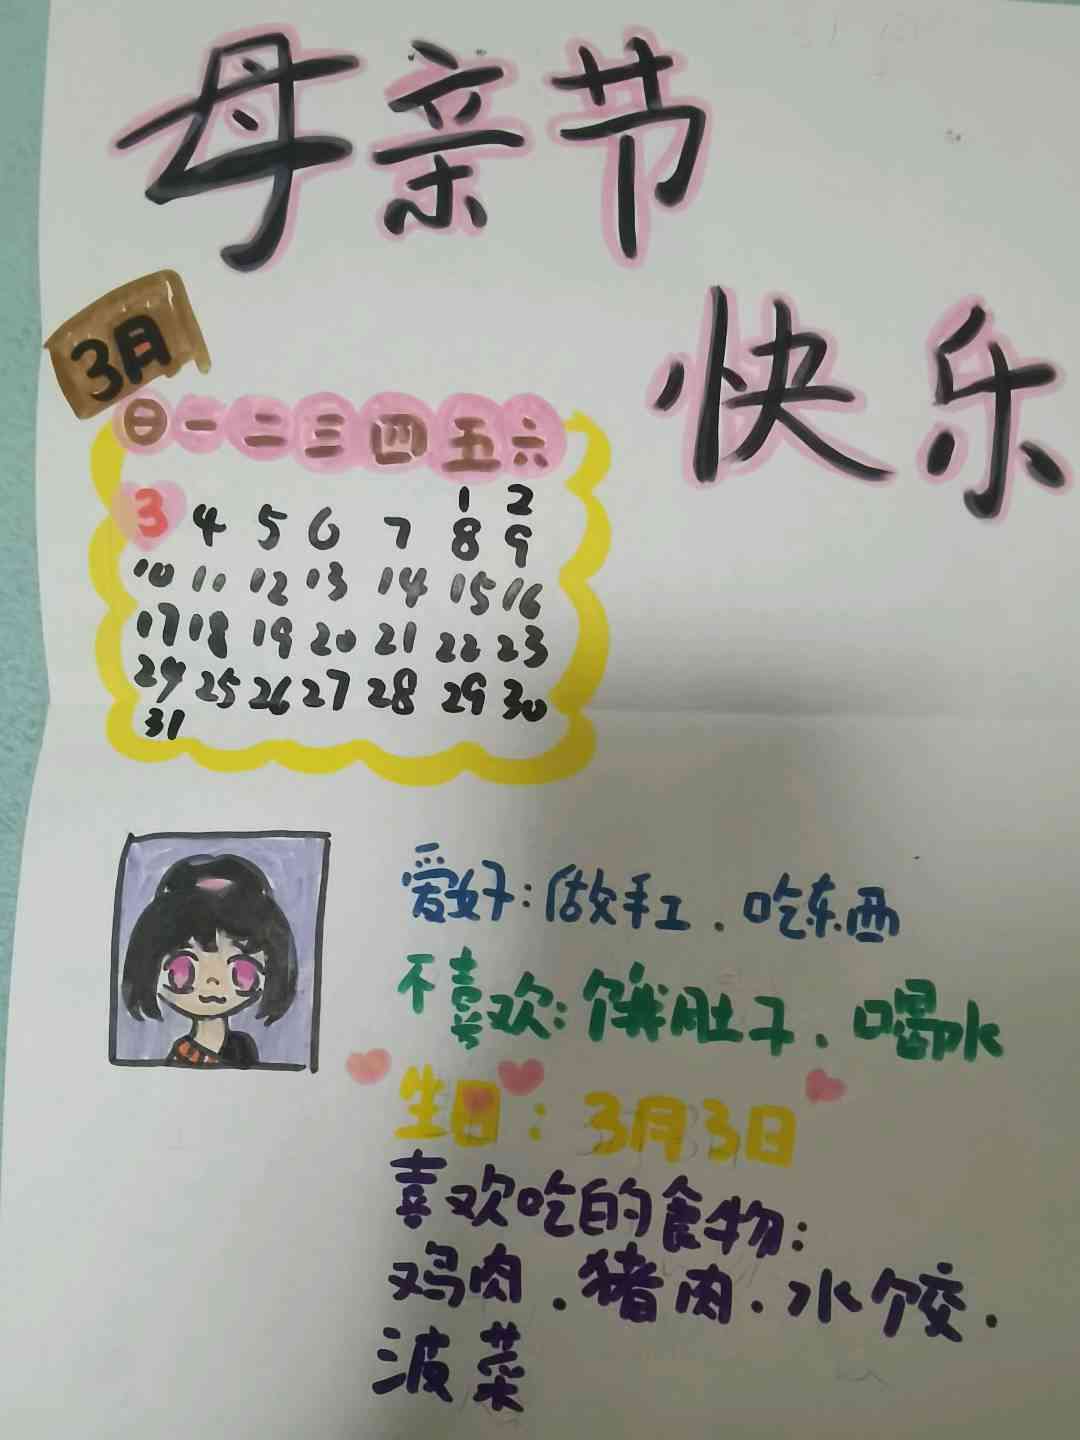 母亲节
快乐
3月
日 一 二 三 四 五 六
1 2
3 4 5 6 7 8 9
10 11 12 13 14 15 16
17 18 19 20 21 22 23
24 25 26 27 28 29 30
31
爱好:做手工、吃东西
不喜欢:饿肚子、喝水
生日:3月3日
喜欢吃的食物:
鸡肉、猪肉、水饺、
菠菜